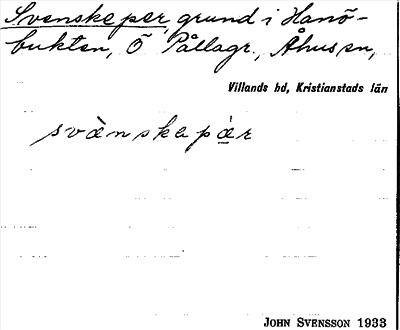 Svenske per, grund i Hanö-
bukten, Ö Pållagr., Åhus sn,
Villands hd, Kristianstads län
svànskepàr
JOHN SVENSSON 1933